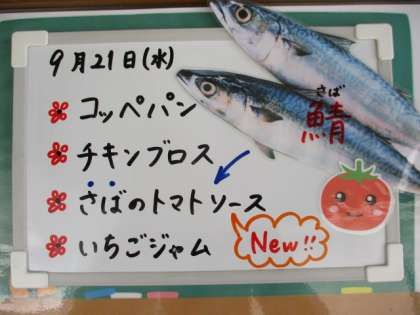 9月21日(水)
コッペパン
チキンブロス
さばのトマトソース
いちごジャム
New!!
さば
鯖